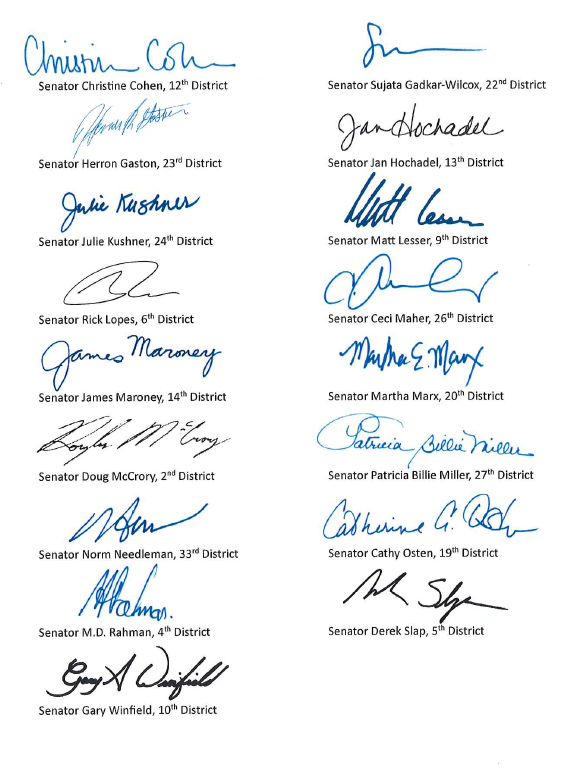 Christine Coh
Senator Christine Cohen, 12th District
Senator Herron Gaston, 23rd District
Julie Kushner
Senator Julie Kushner, 24th District
Senator Rick Lopes, 6th District
James Maroney
Senator James Maroney, 14th District
Douglas McCrory
Senator Doug McCrory, 2nd District
Senator Norm Needleman, 33rd District
Rahman.
Senator M.D. Rahman, 4th District
Gary A Winfield
Senator Gary Winfield, 10th District
Senator Sujata Gadkar-Wilcox, 22nd District
Jan Hochadel
Senator Jan Hochadel, 13th District
Matt Lesser
Senator Matt Lesser, 9th District
Senator Ceci Maher, 26th District
Martha E. Marx
Senator Martha Marx, 20th District
Patricia Billie Miller
Senator Patricia Billie Miller, 27th District
Catherine A. Osten
Senator Cathy Osten, 19th District
Senator Derek Slap, 5th District